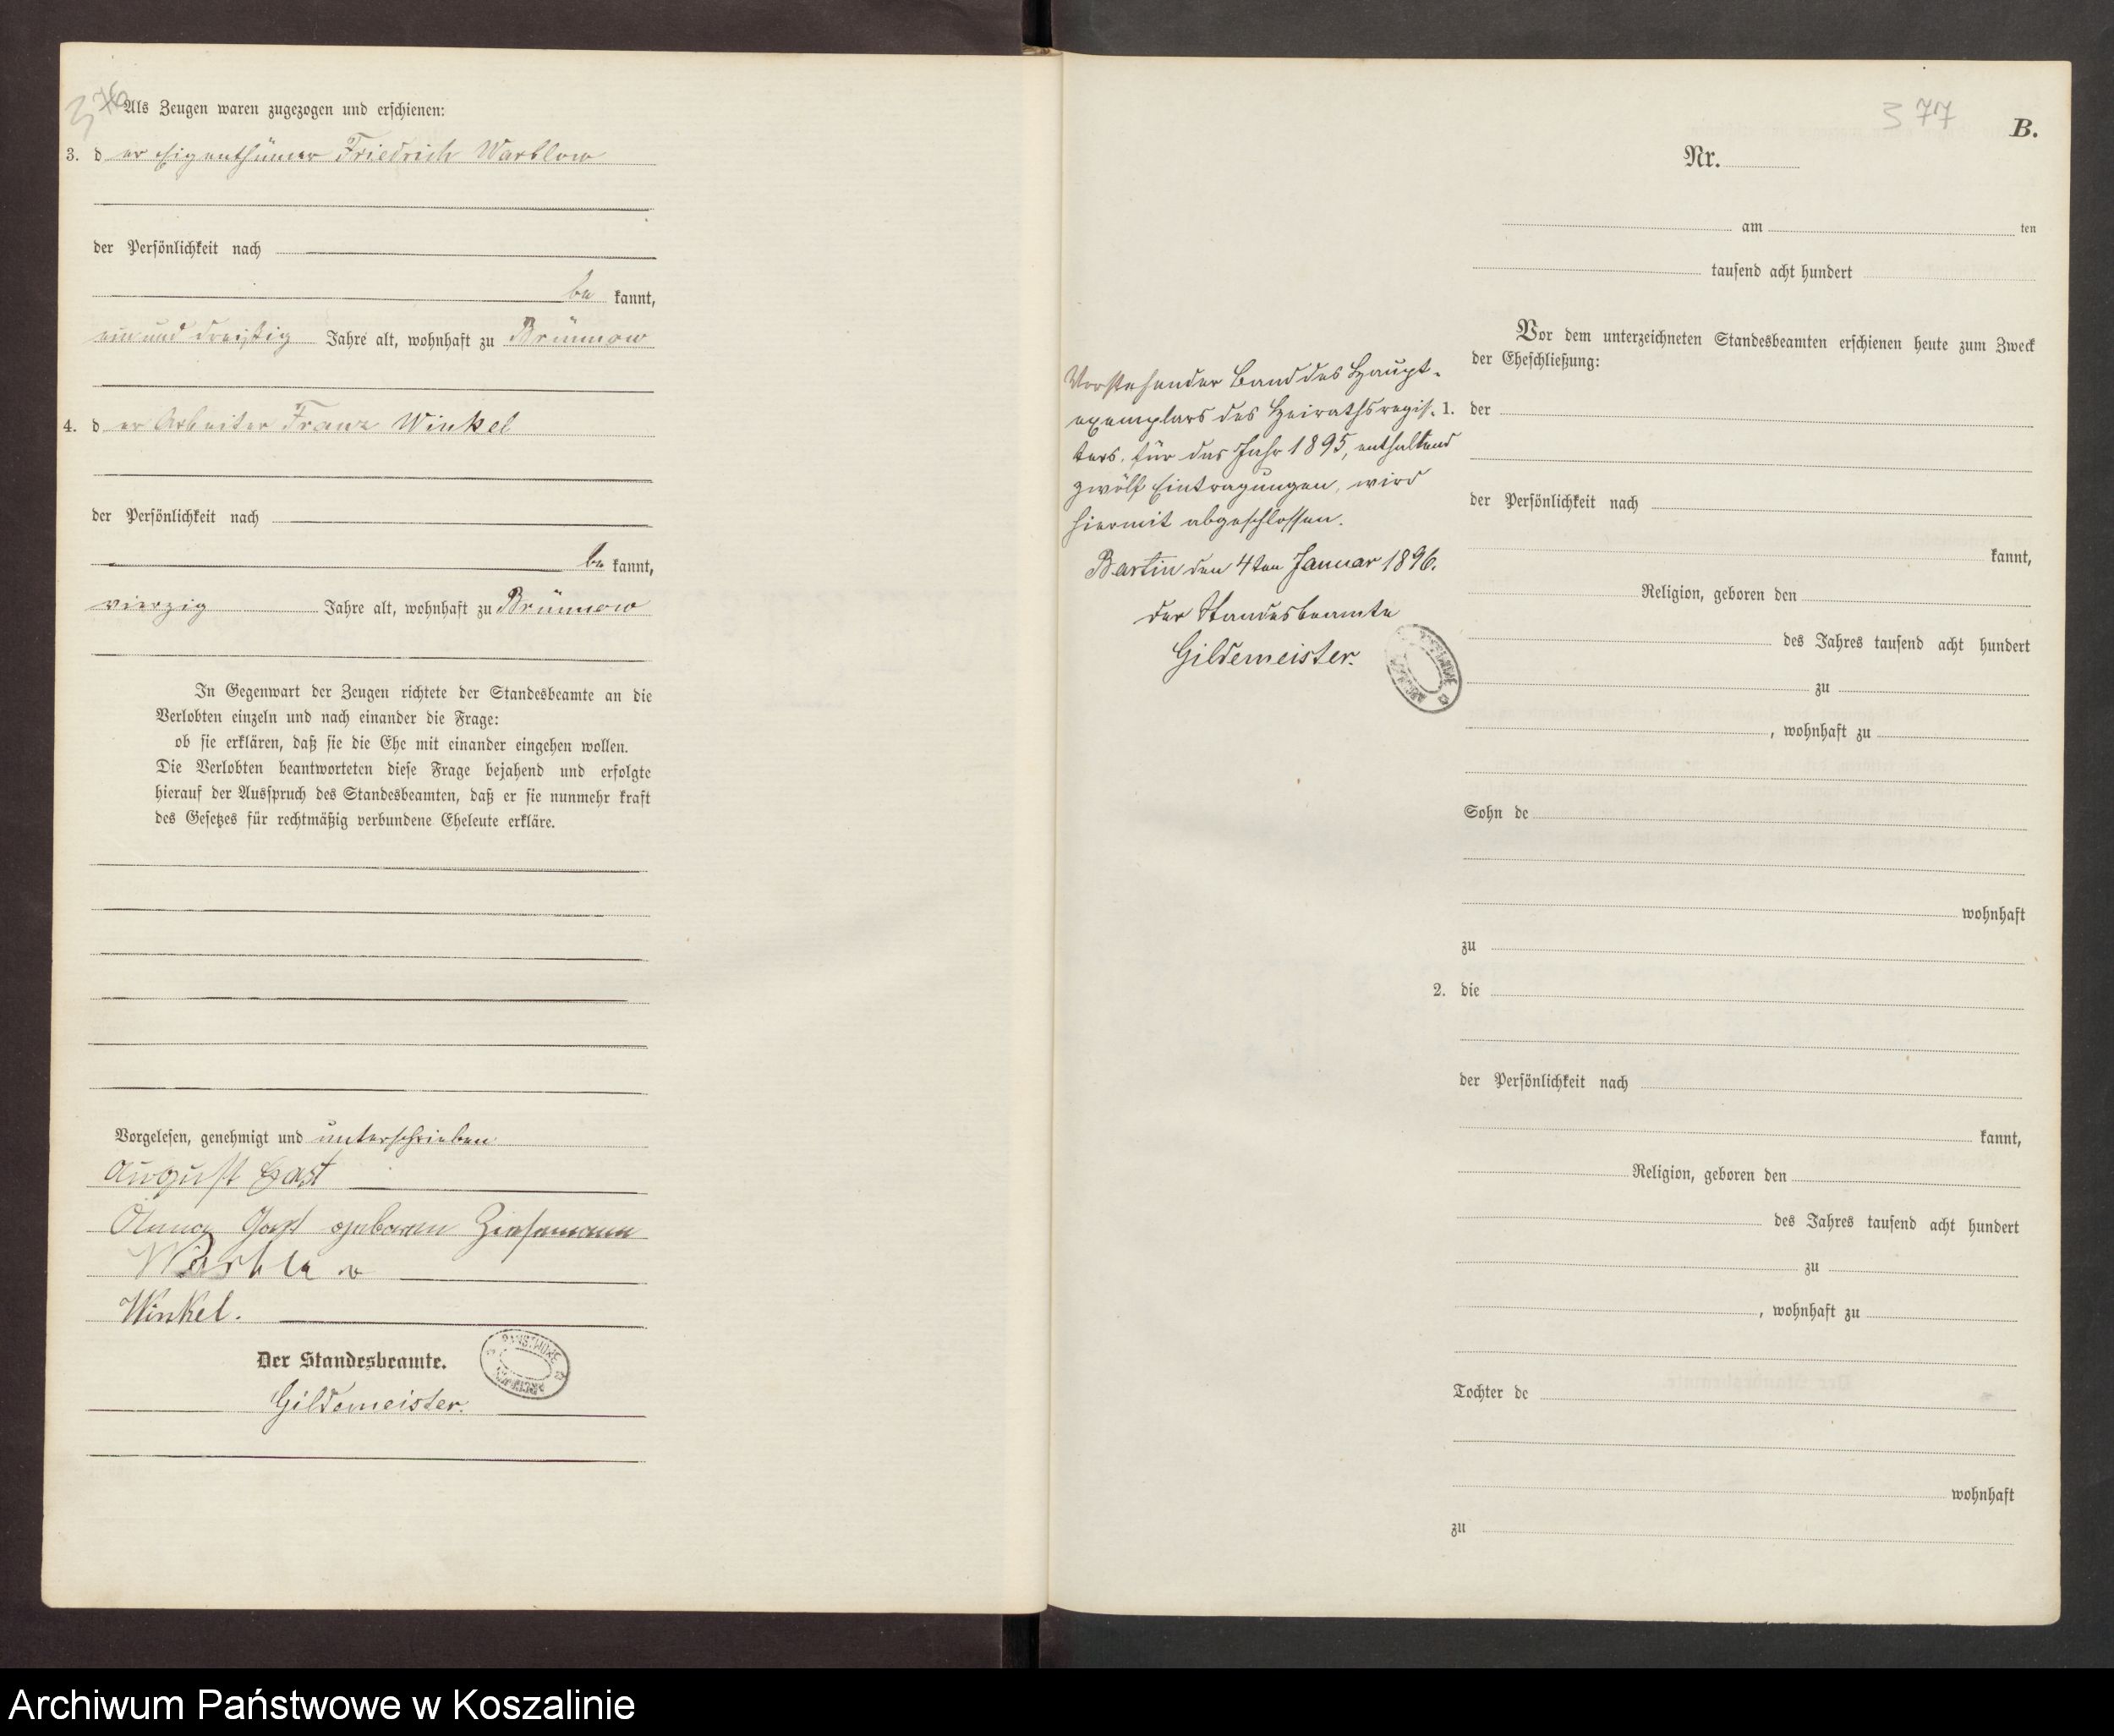 376
Als Zeugen waren zugezogen und erschienen:
3. d er Eigenthümer Friedrich Warblow
der Persönlichkeit nach
be kannt,
ein und dreißig Jahre alt, wohnhaft zu Brünnow
4. d er Arbeiter Franz Winkel
der Persönlichkeit nach
be kannt,
vierzig Jahre alt, wohnhaft zu Brünnow
In Gegenwart der Zeugen richtete der Standesbeamte an die
Verlobten einzeln und nach einander die Frage:
ob sie erklären, daß sie die Ehe mit einander eingehen wollen.
Die Verlobten beantworteten diese Frage bejahend und erfolgte
hierauf der Ausspruch des Standesbeamten, daß er sie nunmehr kraft
des Gesetzes für rechtmäßig verbundene Eheleute erkläre.
Vorgelesen, genehmigt und unterschrieben
August Gast
Anna Gast geboren Ziesemann
Warblow
Winkel.
Der Standesbeamte.
Gildemeister.
377
B.
Nr.
am ten
tausend acht hundert
Vor dem unterzeichneten Standesbeamten erschienen heute zum Zweck
der Eheschließung:
Vorstehender Band des Haupt-
exemplars des Heirathsregis-
ters für das Jahr 1895, enthaltend
zwölf Eintragungen, wird
hiermit abgeschlossen.
Bartin den 4ten Januar 1896.
der Standesbeamte
Gildemeister.
1. der
der Persönlichkeit nach
kannt,
Religion, geboren den
des Jahres tausend acht hundert
zu
, wohnhaft zu
Sohn de
wohnhaft
zu
2. die
der Persönlichkeit nach
kannt,
Religion, geboren den
des Jahres tausend acht hundert
zu
, wohnhaft zu
Tochter de
wohnhaft
zu
Archiwum Państwowe w Koszalinie